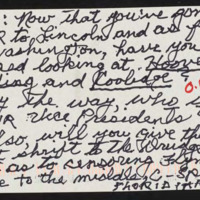 : Now that you've gon
R to, Lincoln and as f
Washington, have you
red looking at, Hoove
ding and Coolidge?
y the way, who is
UR Vice Presidents
lso, will you give th
t shript to the
as to censoring
e to the middle C-SP